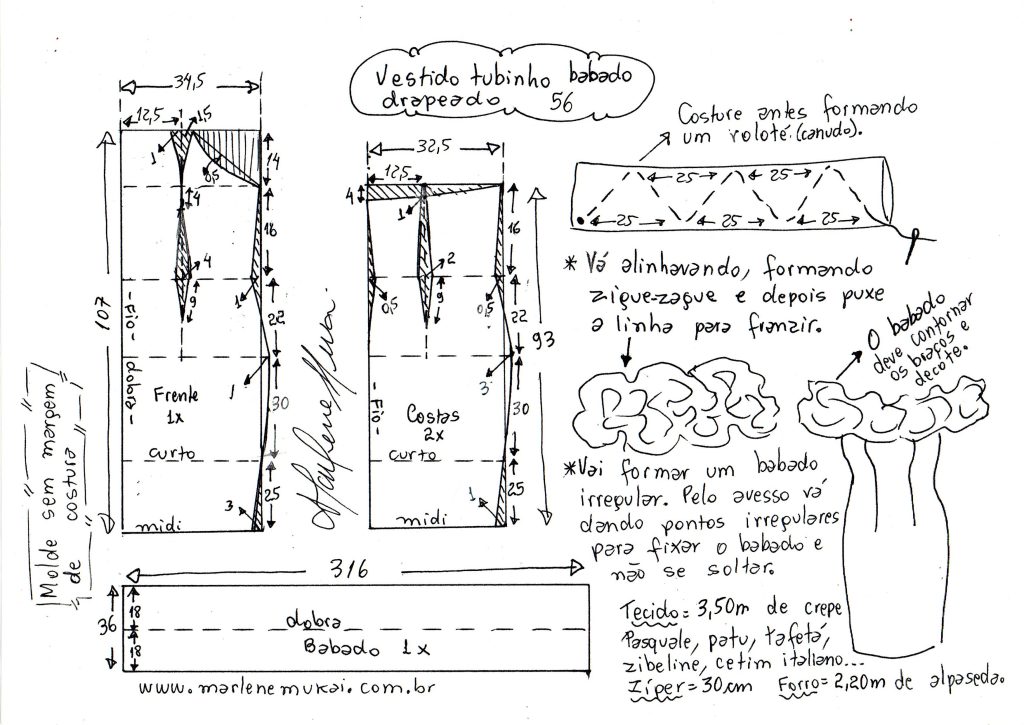 Vestido tubinho babado
drapeado 56
34,5
12,5
1,5
1
0,5
14
4
16
4
9
1
22
107
- Fio - dobra -
Frente
1x
1
30
curto
25
3
midi
Molde sem margem
de costura
Marlene Mukai
32,5
12,5
4
1
16
2
9
0,5
0,5
22
93
3
- Fio -
Costas
2x
30
curto
25
1
midi
316
36
18
18
dobra
Babado 1x
www.marlenemukai.com.br
Costure antes formando
um roloté.(canudo).
25 25
25 25 25
* Vá alinhavando, formando
zigue-zague e depois puxe
a linha para franzir.
O babado
deve contornar
os braços e
decote.
*Vai formar um babado
irregular. Pelo avesso vá
dando pontos irregulares
para fixar o babado e
não se soltar.
Tecido= 3,50m de crepe
Pasquale, patu, tafetá,
zibeline, cetim italiano...
Zíper= 30cm Forro= 2,20m de alpaseda.